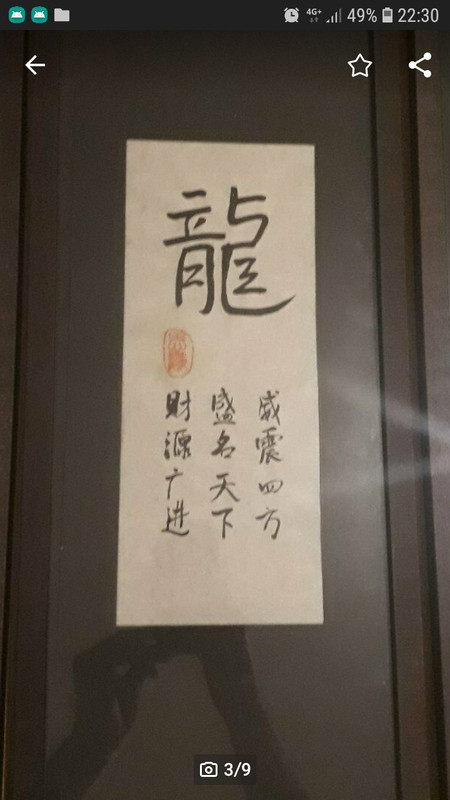 4G+ 49% 22:30
龍
威震四方
盛名天下
財源广进
3/9